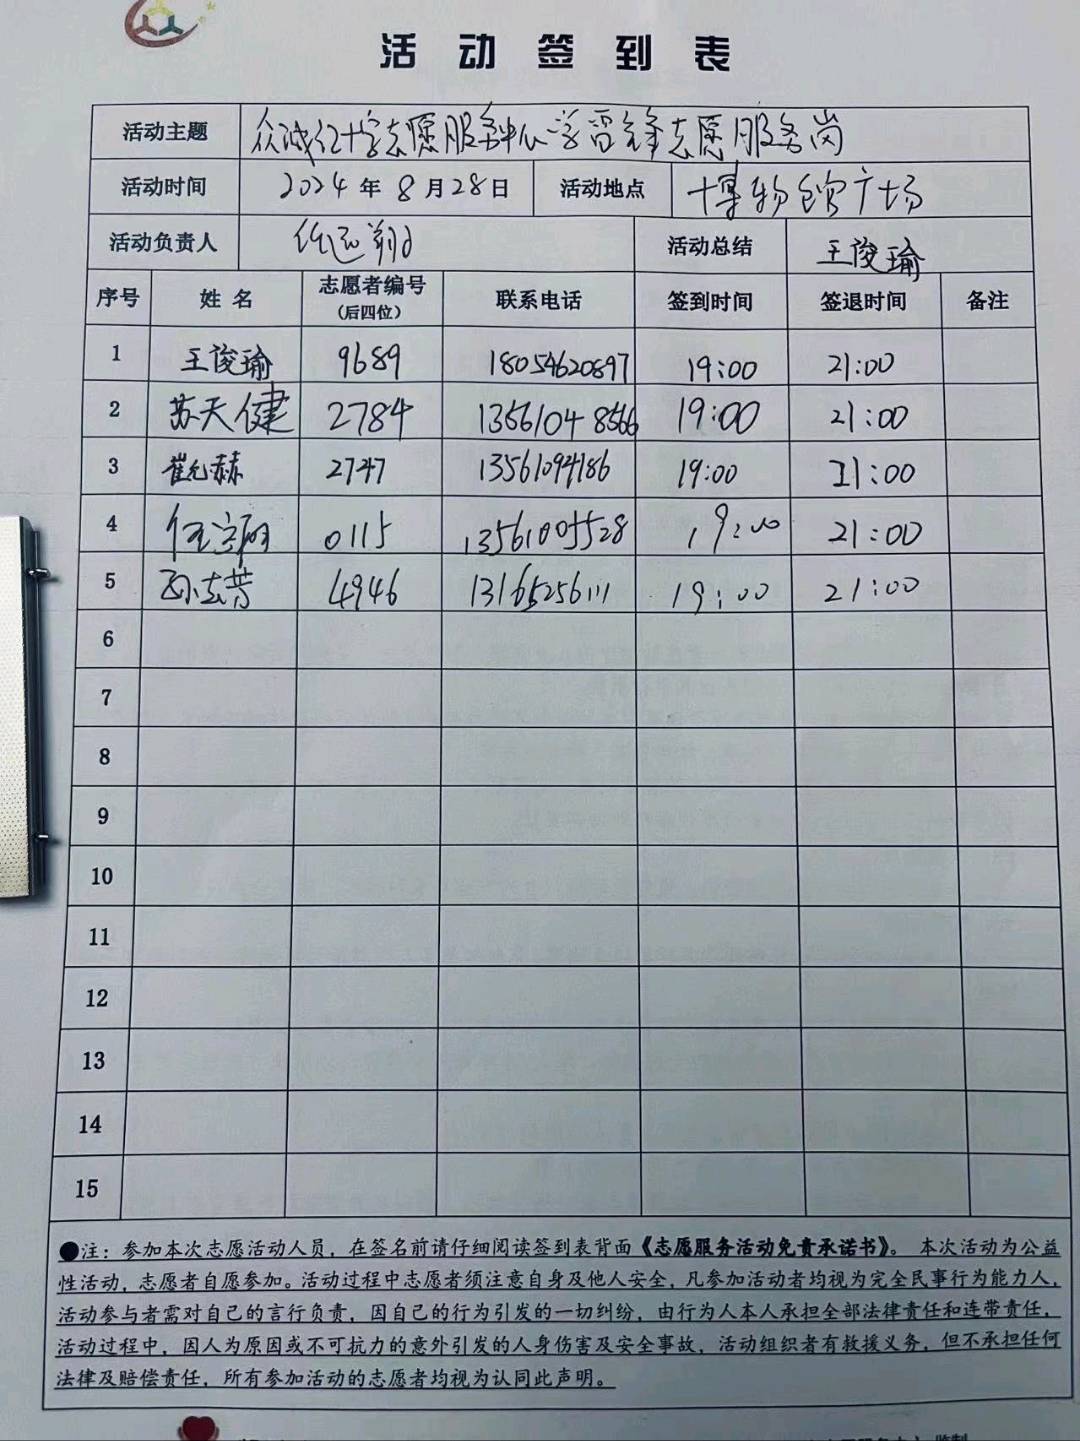 活动签到表
活动主题 众诚红十字志愿服务中心学雷锋志愿服务岗
活动时间 2024年8月28日 活动地点 博物馆广场
活动负责人 活动总结 王俊瑜
序号 姓名 志愿者编号(后四位) 联系电话 签到时间 签退时间 备注
1 王俊瑜 9689 18054620897 19:00 21:00
2 苏天健 2784 13561048566 19:00 21:00
3 崔允赫 2747 13561094186 19:00 21:00
4 0115 13561005528 19:00 21:00
5 4946 13165256111 19:00 21:00
6
7
8
9
10
11
12
13
14
15
●注：参加本次志愿活动人员，在签名前请仔细阅读签到表背面《志愿服务活动免责承诺书》。本次活动为公益
性活动，志愿者自愿参加。活动过程中志愿者须注意自身及他人安全，凡参加活动者均视为完全民事行为能力人，
活动参与者需对自己的言行负责，因自己的行为引发的一切纠纷，由行为人本人承担全部法律责任和连带责任，
活动过程中，因人为原因或不可抗力的意外引发的人身伤害及安全事故，活动组织者有救援义务，但不承担任何
法律及赔偿责任，所有参加活动的志愿者均视为认同此声明。